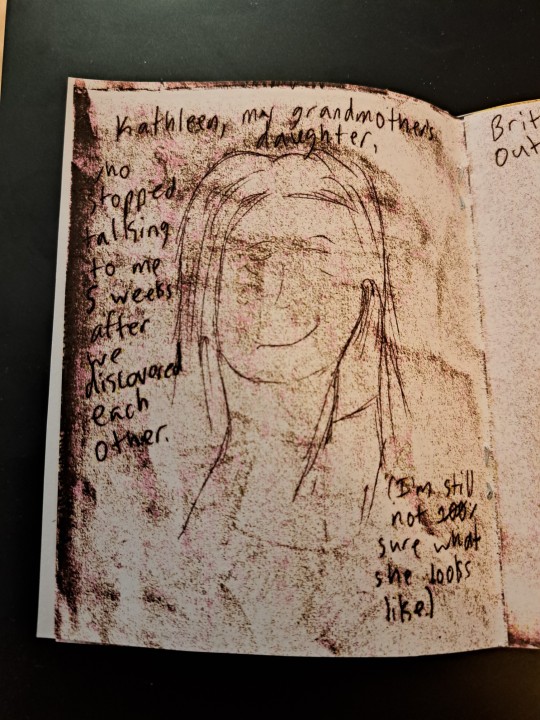 Kathleen, my grandmother's
daughter,
who
stopped
talking
to me
5 weeks
after
we
discovered
each
other.
(I'm still
not 100%
sure what
she looks
like.)
Brit
out